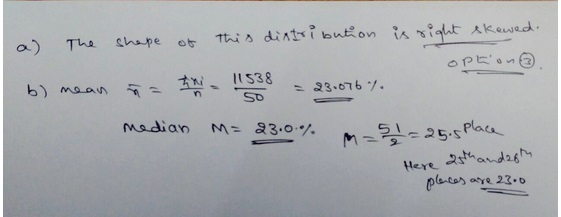 a) The shape of this distribution is right skewed.
option ③.
b) mean x̄ = Σxi/n = 11538/50 = 23.076 %.
median M = 23.0 % M = 51/2 = 25.5 place
Here 25th and 26th
places are 23.0